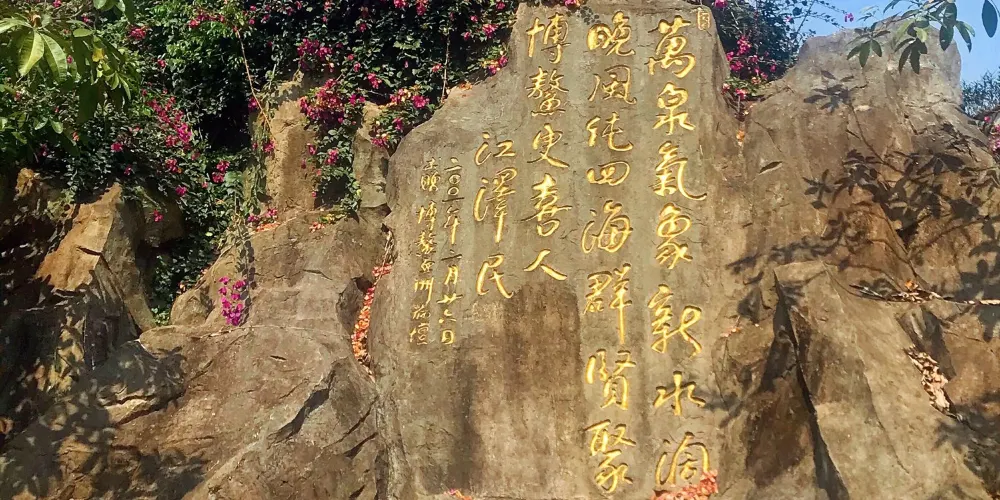 萬泉氣象新水闊
晚風純四海群賢聚
博鰲更喜人
江澤民
二〇〇一年二月廿六日
題博鰲亞洲論壇